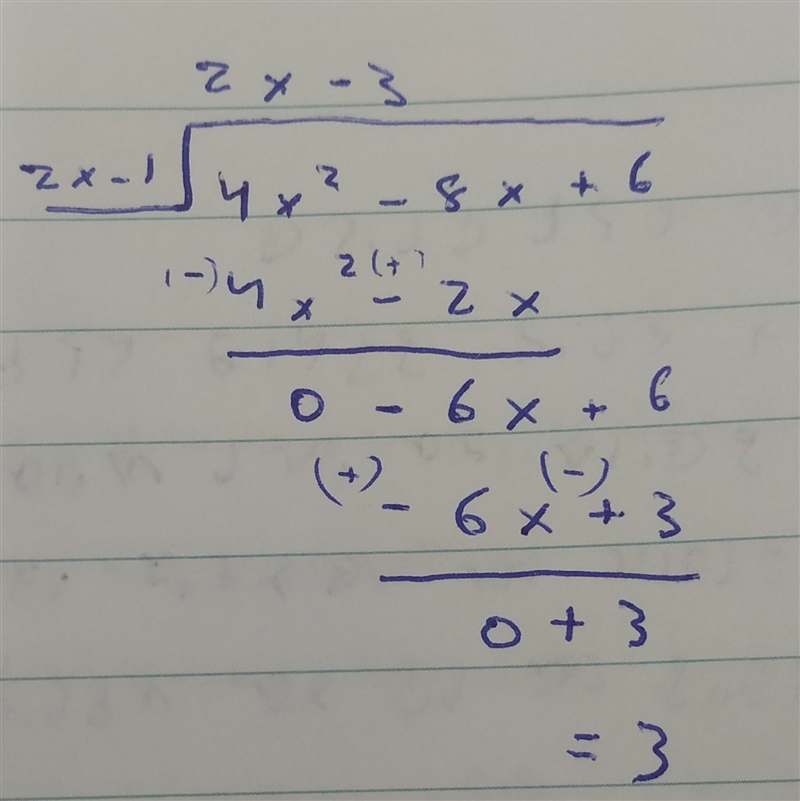 2x - 3
2x - 1 4x² - 8x + 6
(-) 4x² (+) - 2x
0 - 6x + 6
(+) - 6x (-) + 3
0 + 3
= 3